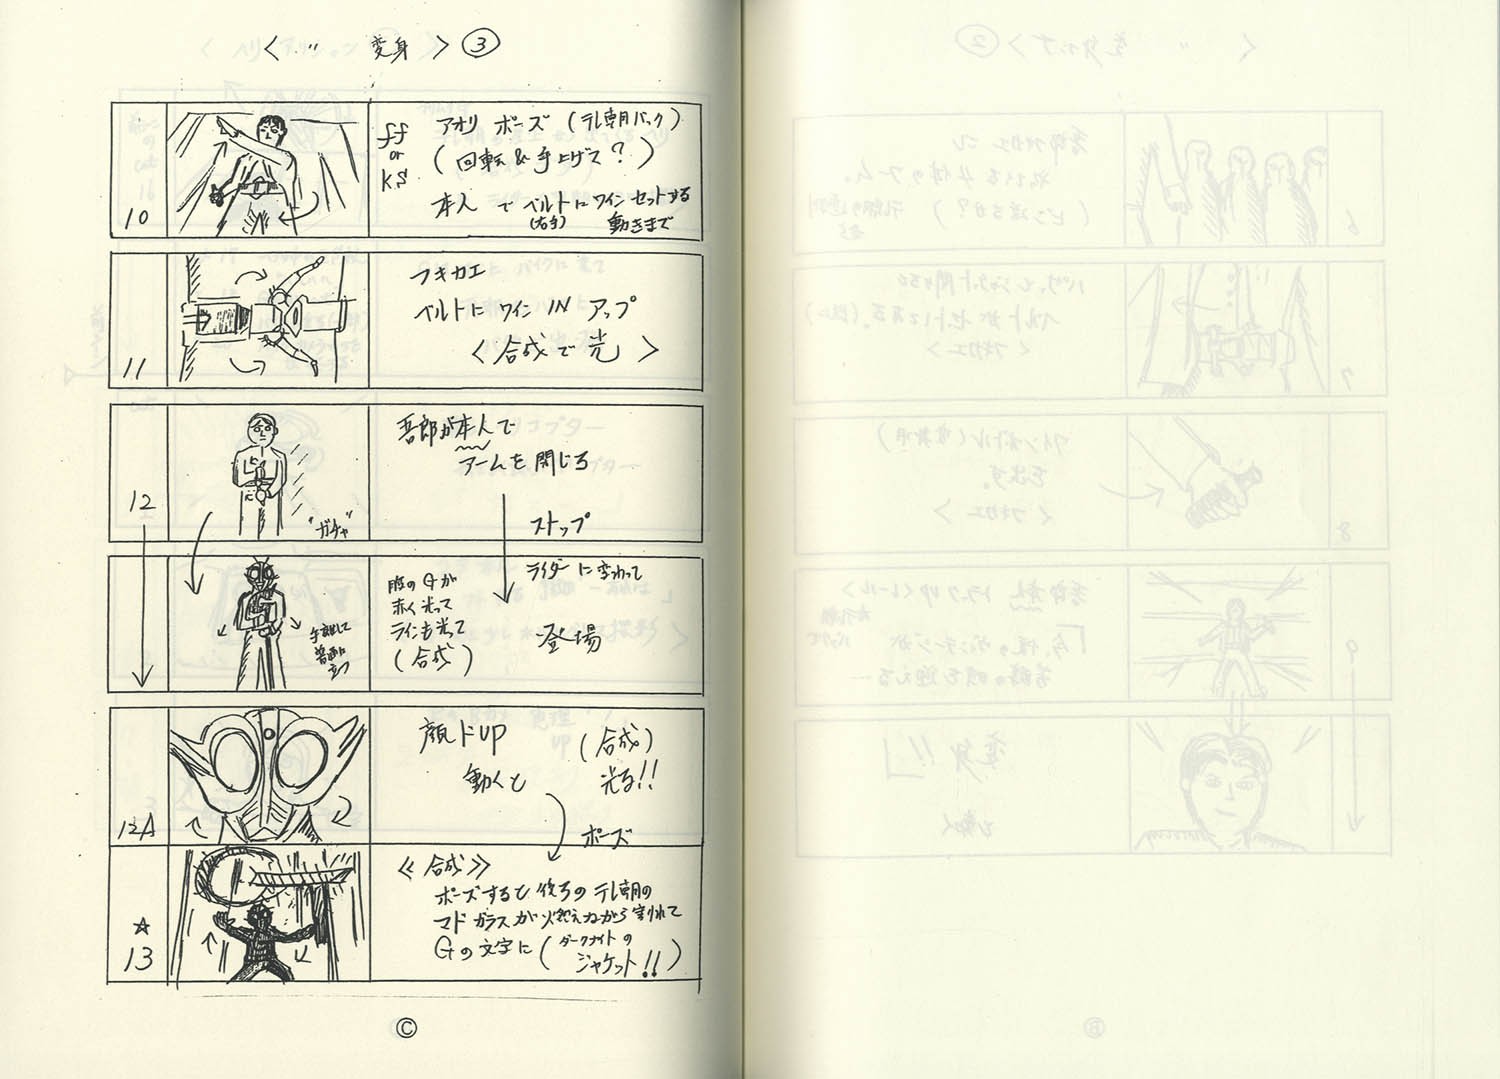 〈 〃 変身 〉 ③
10
ff or KS
アオリ ポーズ (テレ朝バック)
(回転&手上げて?)
本人 で ベルトにワインセットする
(右手) 動きまで
11
フキカエ
ベルトに ワイン IN アップ
〈合成で光〉
12
吾郎が本人で
アームを閉じる
"ガチャ"
ストップ
ライダーに変わって
登場
胸のGが
赤く光って
ラインも光って
(合成)
手を出して
普通に
立つ
12A
顔ドUP
動くと
(合成)
光る!!
ポーズ
☆
13
《合成》
ポーズすると後ろのテレ朝の
マドガラスが燃えながら割れて
Gの文字に (ダークナイトの
ジャケット!!)
Ⓒ